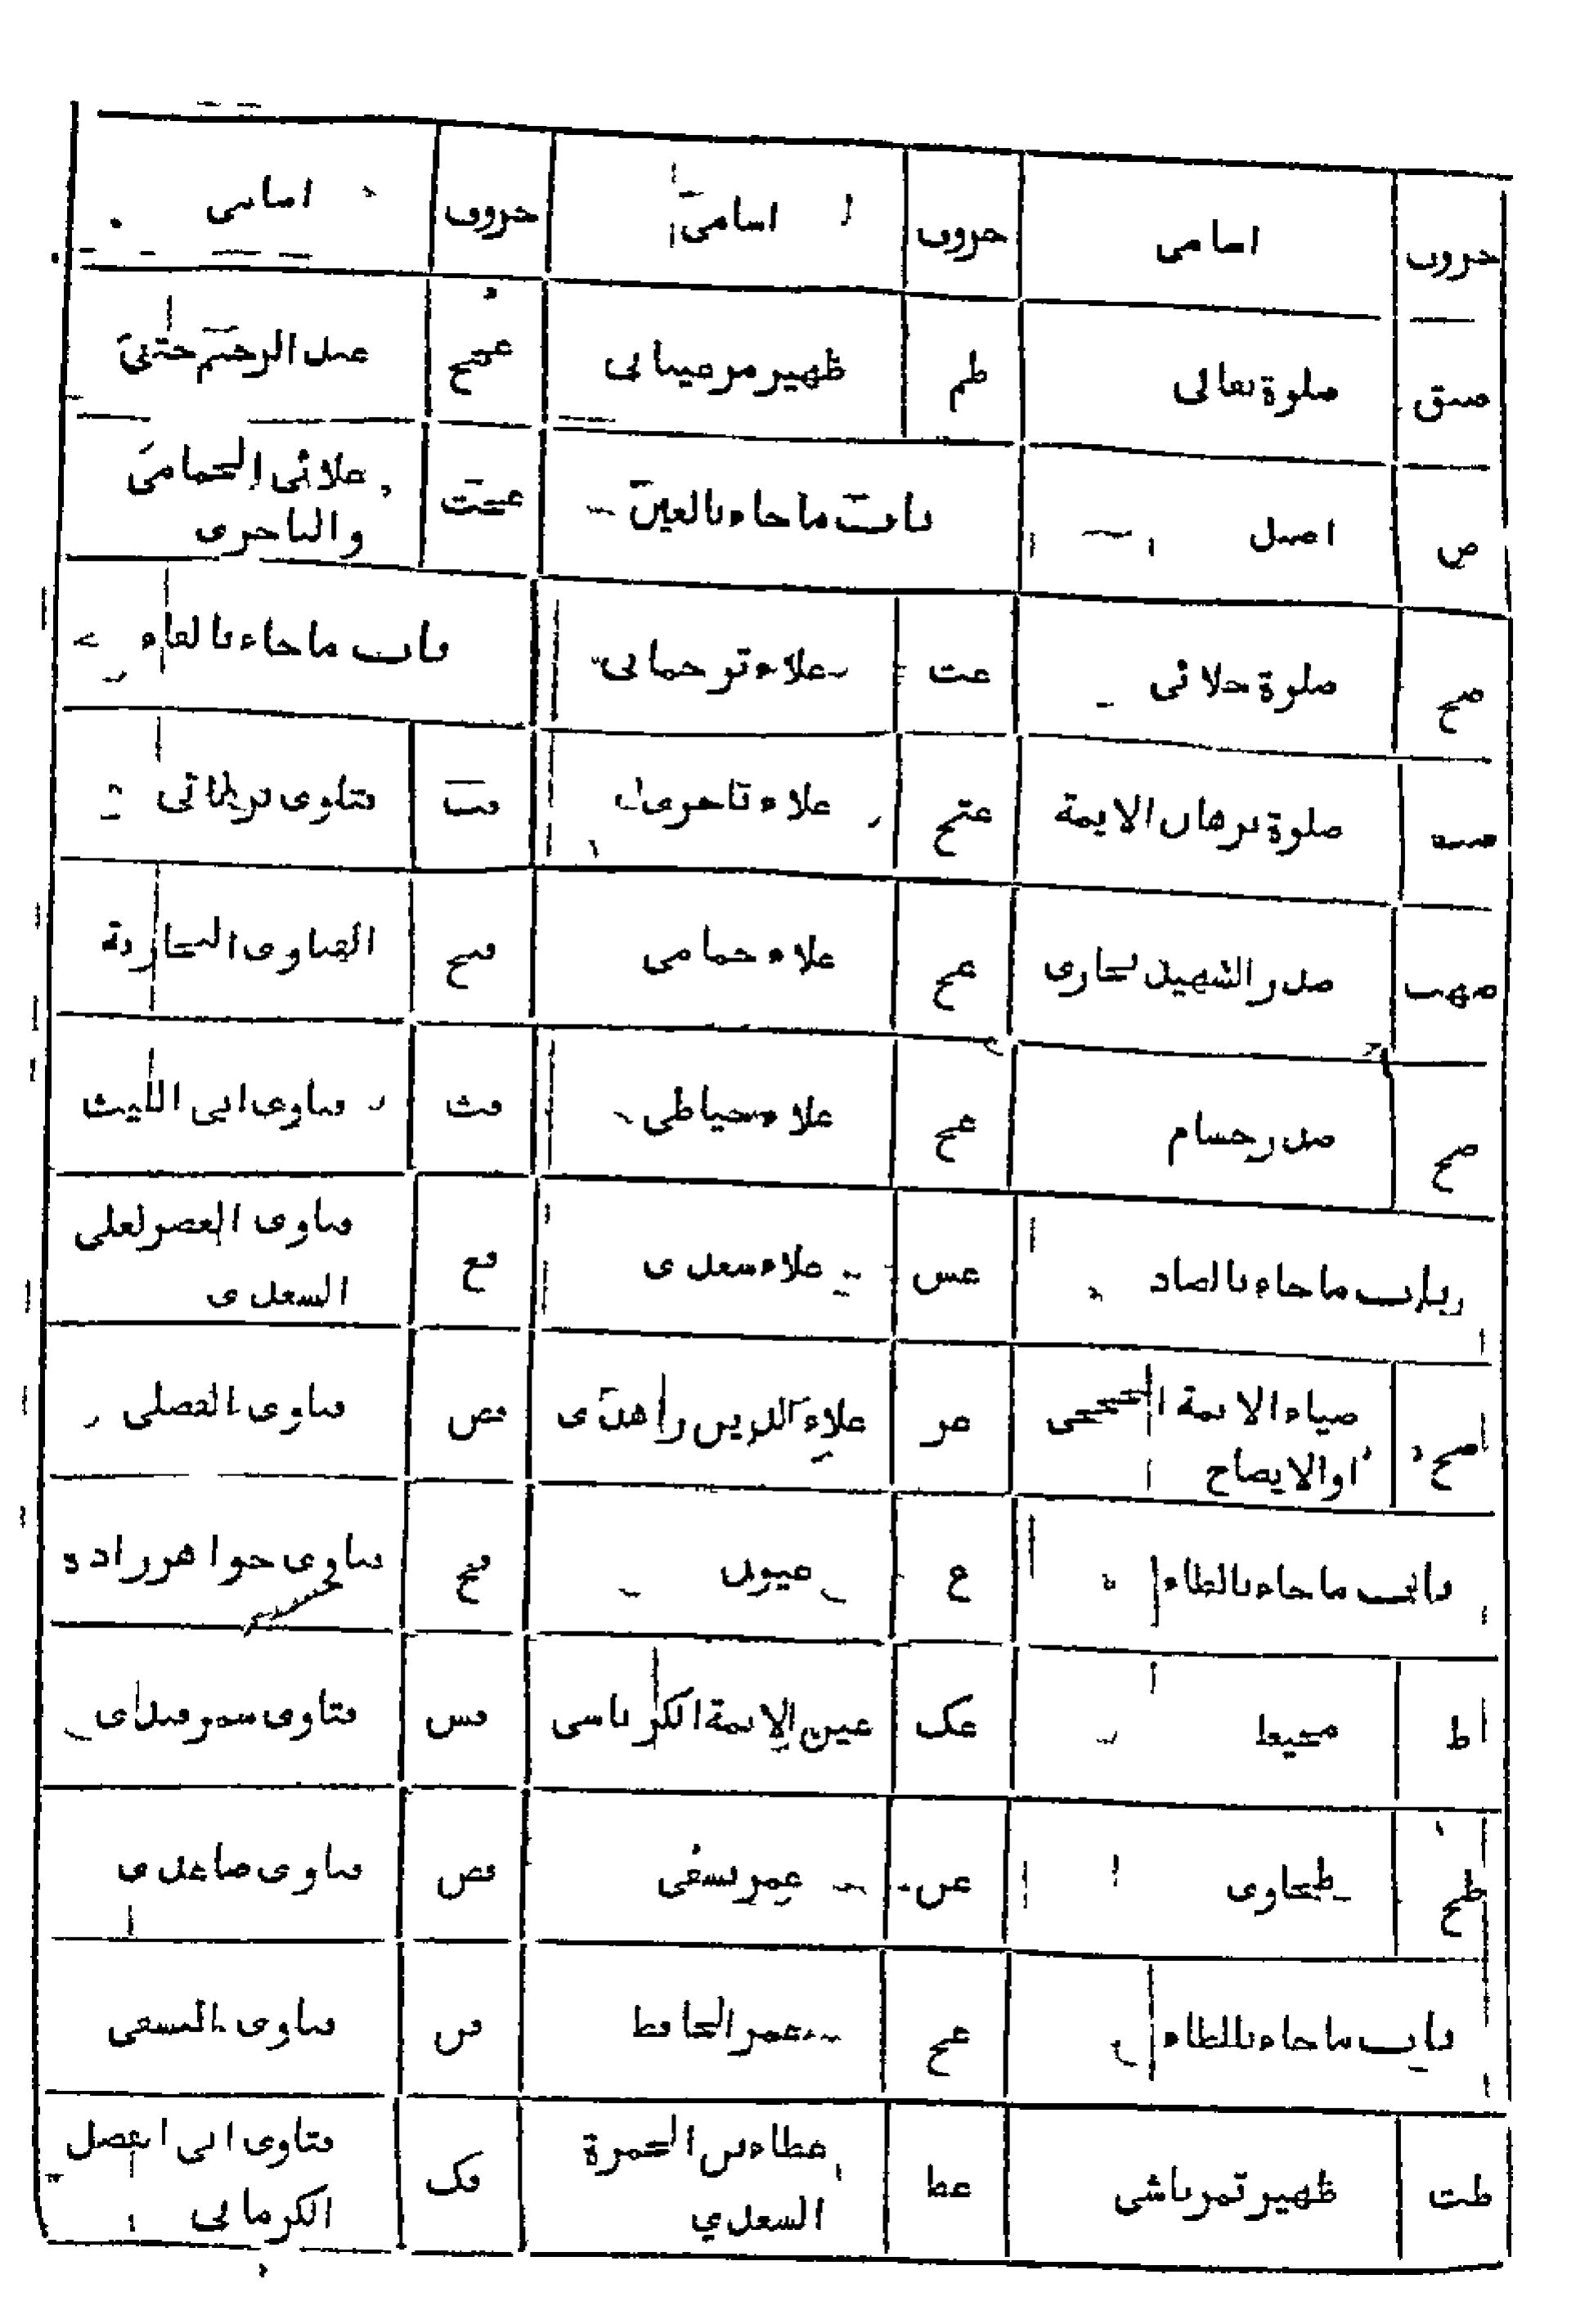 حروف اسامی حروف اسامی حروف اسامی
صىق صلوة ىعالى طم ظهير مرعيىانى عبد الرحيم ختنى
ص اصل باب ما جاء بالعين علائى الحمامى
والتاجرى
صح صلوة جلائى عت علاء ترجمانى باب ما جاء بالفاء
صلوة برهان الايمة عتج علاء تاجرى فب
صهب صدر الشهيد بخارى عح علاء حمامى فبخ الفتاوى البخارية
صح صدر حسام عخ علاء خياطى فث فتاوى ابى الليث
باب ما جاء بالضاد عس علاء سعدى فع فتاوى العصر لعلى
السعدى
ضح ضياء الايمة الحججى
او الايضاح
عز علاء الدين زاهدى فض فتاوى الفضلى
باب ما جاء بالطاء ع عيون فخ فتاوى خواهر زاده
ط محيط عک عين الايمة الكرباسى فس فتاوى سمرقندى
طح طحاوى عن عمر نسفى فص فتاوى صاعدى
باب ما جاء بالظاء عح عمر الحافظ فن فتاوى النسفى
ظت ظهير تمرتاشى عط عطاء بن الحمزة
السعدي
فک فتاوى ابى الفضل
الكرمانى